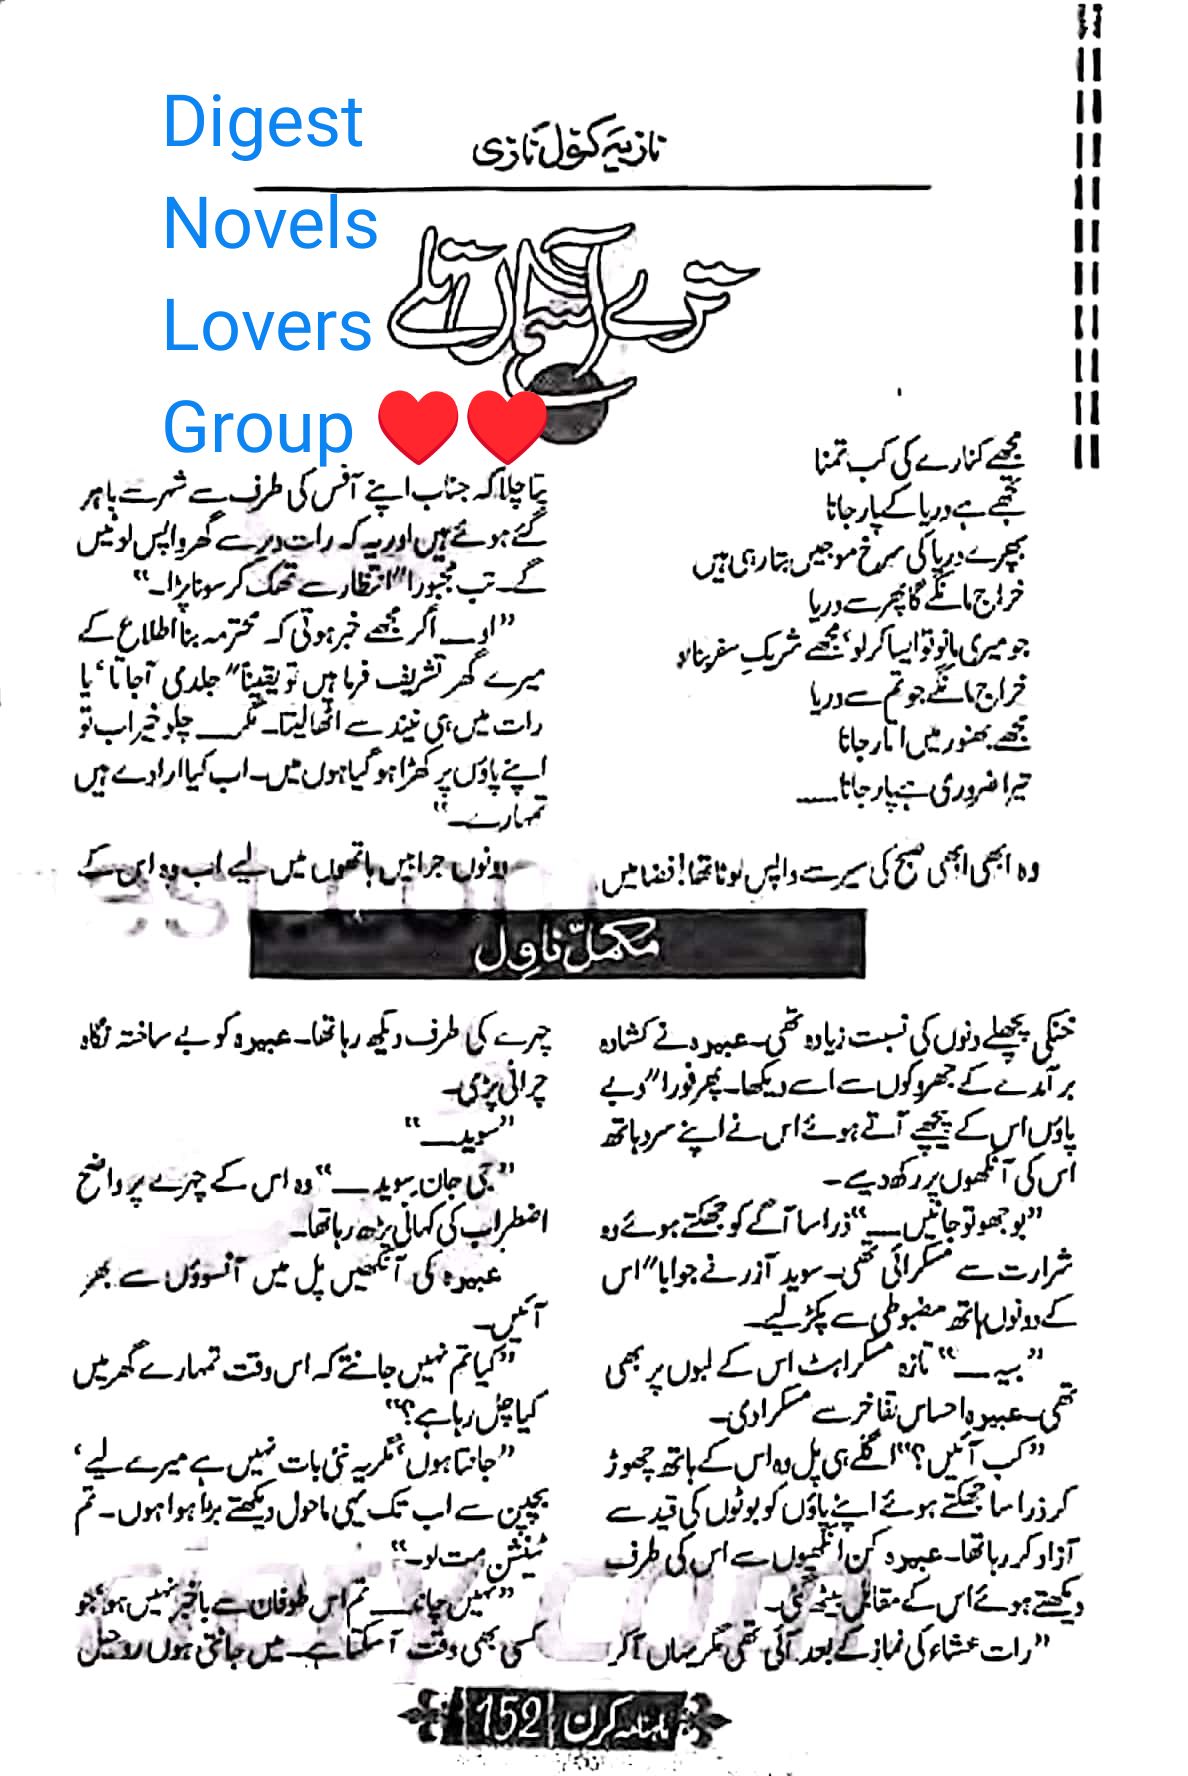 Digest
Novels
Lovers
Group
نازیہ کنول نازی
ترے آسماں تلے
مجھے کنارے کی کب تمنا
تجھے ہے دریا کے پار جانا
بپھرے دریا کی سرخ موجیں بتا رہی ہیں
خراج مانگے گا پھر سے دریا
جو میری مانو تو ایسا کر لو‘ مجھے شریکِ سفر بنا لو
خراج مانگے جو تم سے دریا
مجھے بھنور میں اتار جانا
تیرا ضروری ہے پار جانا.....
وہ ابھی ابھی صبح کی سیر سے واپس لوٹا تھا! فضا میں
خنکی پچھلے دنوں کی نسبت زیادہ تھی۔ عبیرہ نے کشادہ
برآمدے کے جھروکوں سے اسے دیکھا۔ پھر فورا″ دبے
پاؤں اس کے پیچھے آتے ہوئے اس نے اپنے سرد ہاتھ
اس کی آنکھوں پر رکھ دیے۔
”بوجھو تو جانیں۔“ ذرا سا آگے کو جھکتے ہوئے وہ
شرارت سے مسکرائی تھی۔ سوید آزر نے جوابا″ اس
کے دونوں ہاتھ مضبوطی سے پکڑ لیے۔
”بیہ۔“ تازہ مسکراہٹ اس کے لبوں پر بھی
تھی۔ عبیرہ احساس تفاخر سے مسکرا دی۔
”کب آئیں؟“ اگلے ہی پل وہ اس کے ہاتھ چھوڑ
کر ذرا سا جھکتے ہوئے اپنے پاؤں کو بوٹوں کی قید سے
آزاد کر رہا تھا۔ عبیرہ کن انکھیوں سے اس کی طرف
دیکھتے ہوئے اس کے مقابل بیٹھ گئی۔
”رات عشاء کی نماز کے بعد آئی تھی مگر یہاں آ کر
پتا چلا کہ جناب اپنے آفس کی طرف سے شہر سے باہر
گئے ہوئے ہیں اور یہ کہ رات دیر سے گھر واپس لوٹیں
گے۔ تب مجبورا″ انتظار سے تھک کر سونا پڑا۔“
”اوہ۔ اگر مجھے خبر ہوتی کہ محترمہ بنا اطلاع کے
میرے گھر تشریف فرما ہیں تو یقینا″ جلدی آ جاتا‘ یا
رات میں ہی نیند سے اٹھا لیتا۔ مگر۔ چلو خیر اب تو
اپنے پاؤں پر کھڑا ہو گیا ہوں میں۔ اب کیا ارادے ہیں
تمہارے۔“
دونوں جرابیں ہاتھوں میں لیے اب وہ اس کے
چہرے کی طرف دیکھ رہا تھا۔ عبیرہ کو بے ساختہ نگاہ
چرانی پڑی۔
”سوید۔“
”جی جان سوید۔“ وہ اس کے چہرے پر واضح
اضطراب کی کہانی پڑھ رہا تھا۔
عبیرہ کی آنکھیں پل میں آنسوؤں سے بھر
آئیں۔
”کیا تم نہیں جانتے کہ اس وقت تمہارے گھر میں
کیا چل رہا ہے؟“
”جانتا ہوں‘ مگر یہ نئی بات نہیں ہے میرے لیے‘
بچپن سے اب تک یہی ماحول دیکھتے بڑا ہوا ہوں۔ تم
ٹینشن مت لو۔“
”نہیں چاند۔ تم اس طوفان سے باخبر نہیں ہو‘ جو
کسی بھی وقت آ سکتا ہے۔ میں جانتی ہوں روحیل
مکمل ناول
ماہنامہ کرن 152